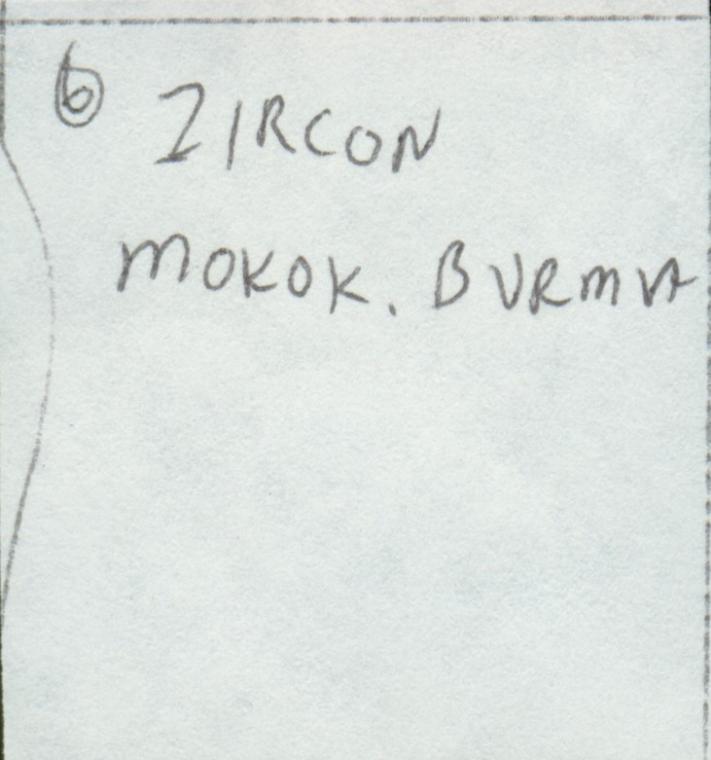 6 ZIRCON
MOKOK. BURMA